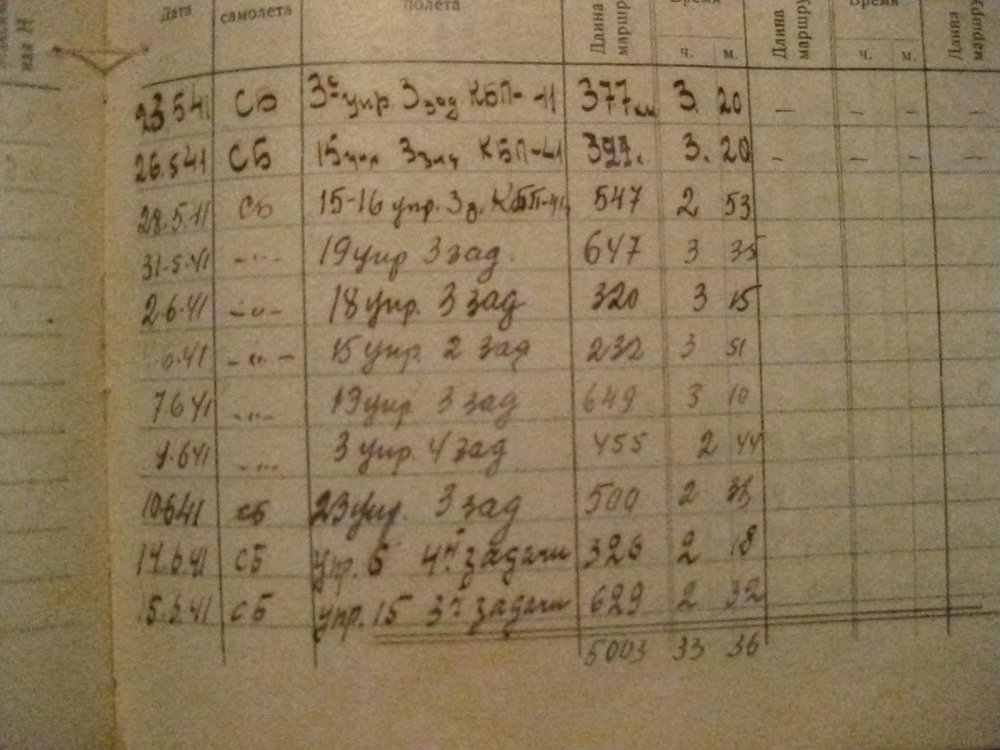 Дата самолета полета Длина маршру Время Длина маршру Время Длина маршру
ч. м. ч. м.
23.5.41 СБ 3е упр. 3 зад КБП-41 377 км 3. 20 — — —
26.5.41 СБ 15 упр 3 зад КБП-41 397. 3. 20 — — — —
28.5.41 СБ 15-16 упр. 3 з. КБП-41 547 2 53
31.5.41 -"- 19 упр 3 зад. 647 3 35
2.6.41 -"- 18 упр. 3 зад 320 3 15
.6.41 -"- 15 упр. 2 зад 232 3 51
7 6 41 -"- 19 упр. 3 зад 649 3 10
6 41 -"- 3 упр. 4 зад 455 2 44
10 6 41 СБ 23 упр. 3 зад 500 2
14.6.41 СБ упр. 6 4й задачи 326 2 18
15.6.41 СБ упр. 15 3й задачи 629 2 32
5003 33 36